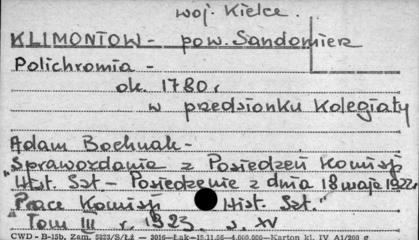 woj. Kielce.
KLIMONTÓW - pow. Sandomierz
Polichromia -
ok. 1780 r.
w przedsionku Kolegiaty
Adam Bochnak -
"Sprawozdania z Posiedzeń Komisji
Hist. Szt - Posiedzenie z dnia 18 maja 1922.
Prace Komisji Hist. Szt."
Tom III r. 1923. s. XV
CWD - B-15b, Zam. 5823/S/Łż — 2016—Łąk—15.11.56—4.000.000—Karton kl. IV A1/200 g